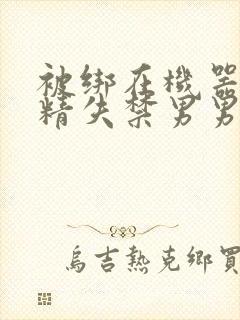 被绑在機器
精失禁男男
烏吉熱克鄉買